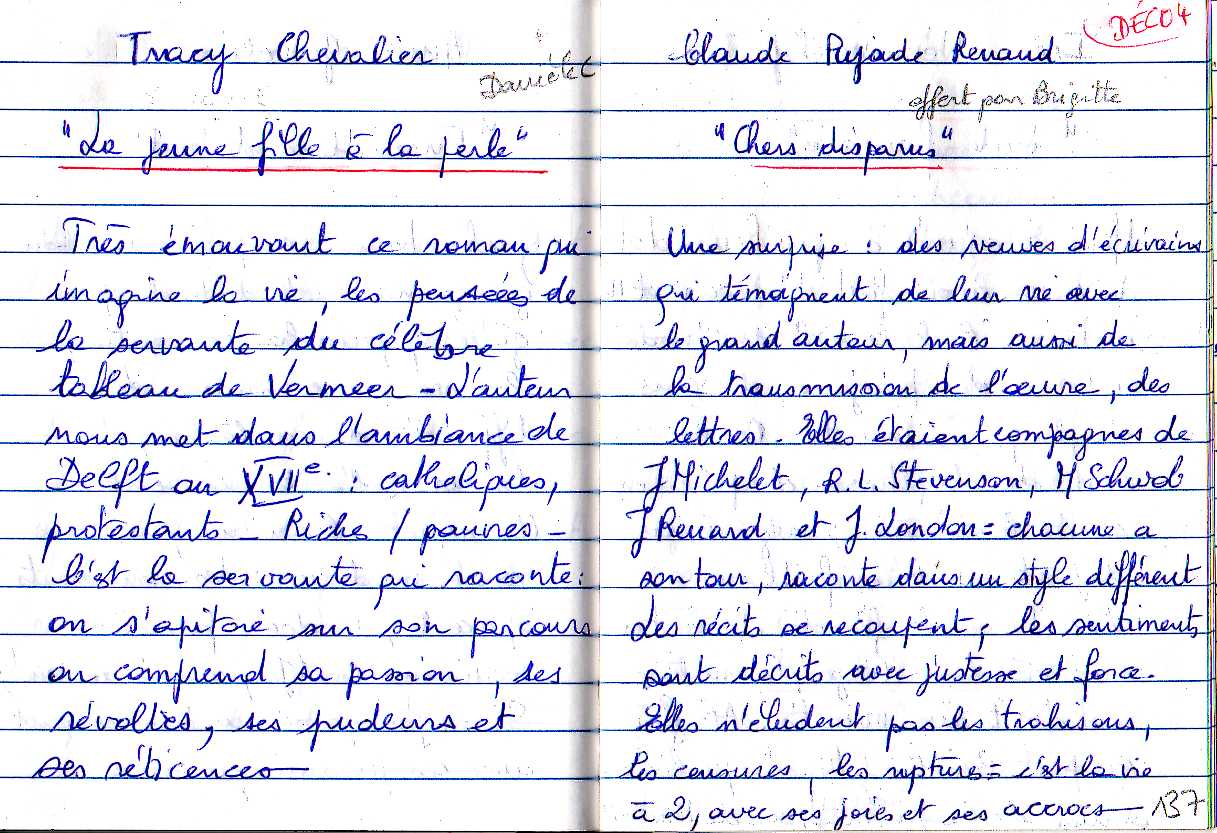 Tracy Chevalier
Danièle C
"La jeune fille à la perle"
Très émouvant ce roman qui
imagine la vie, les pensées de
la servante du célèbre
tableau de Vermeer – L'auteur
nous met dans l'ambiance de
Delft au XVIIe. : catholiques,
protestants – Riches / pauvres –
C'est la servante qui raconte :
on s'apitoie sur son parcours
on comprend sa passion, ses
révoltes, ses pudeurs et
ses réticences —
DÉC04
Claude Pujade Renaud
offert par Brigitte
"Chers disparus"
Une surprise : des veuves d'écrivains
qui témoignent de leur vie avec
le grand auteur, mais aussi de
la transmission de l'œuvre, des
lettres. Elles étaient compagnes de
J Michelet, R.L. Stevenson, M Schwob
J Renard et J. London = chacune a
son tour, raconte dans un style différent
des récits se recoupent ; les sentiments
sont décrits avec justesse et force.
Elles n'éludent pas les trahisons,
les censures, les ruptures = c'est la vie
à 2, avec ses joies et ses accrocs — 137